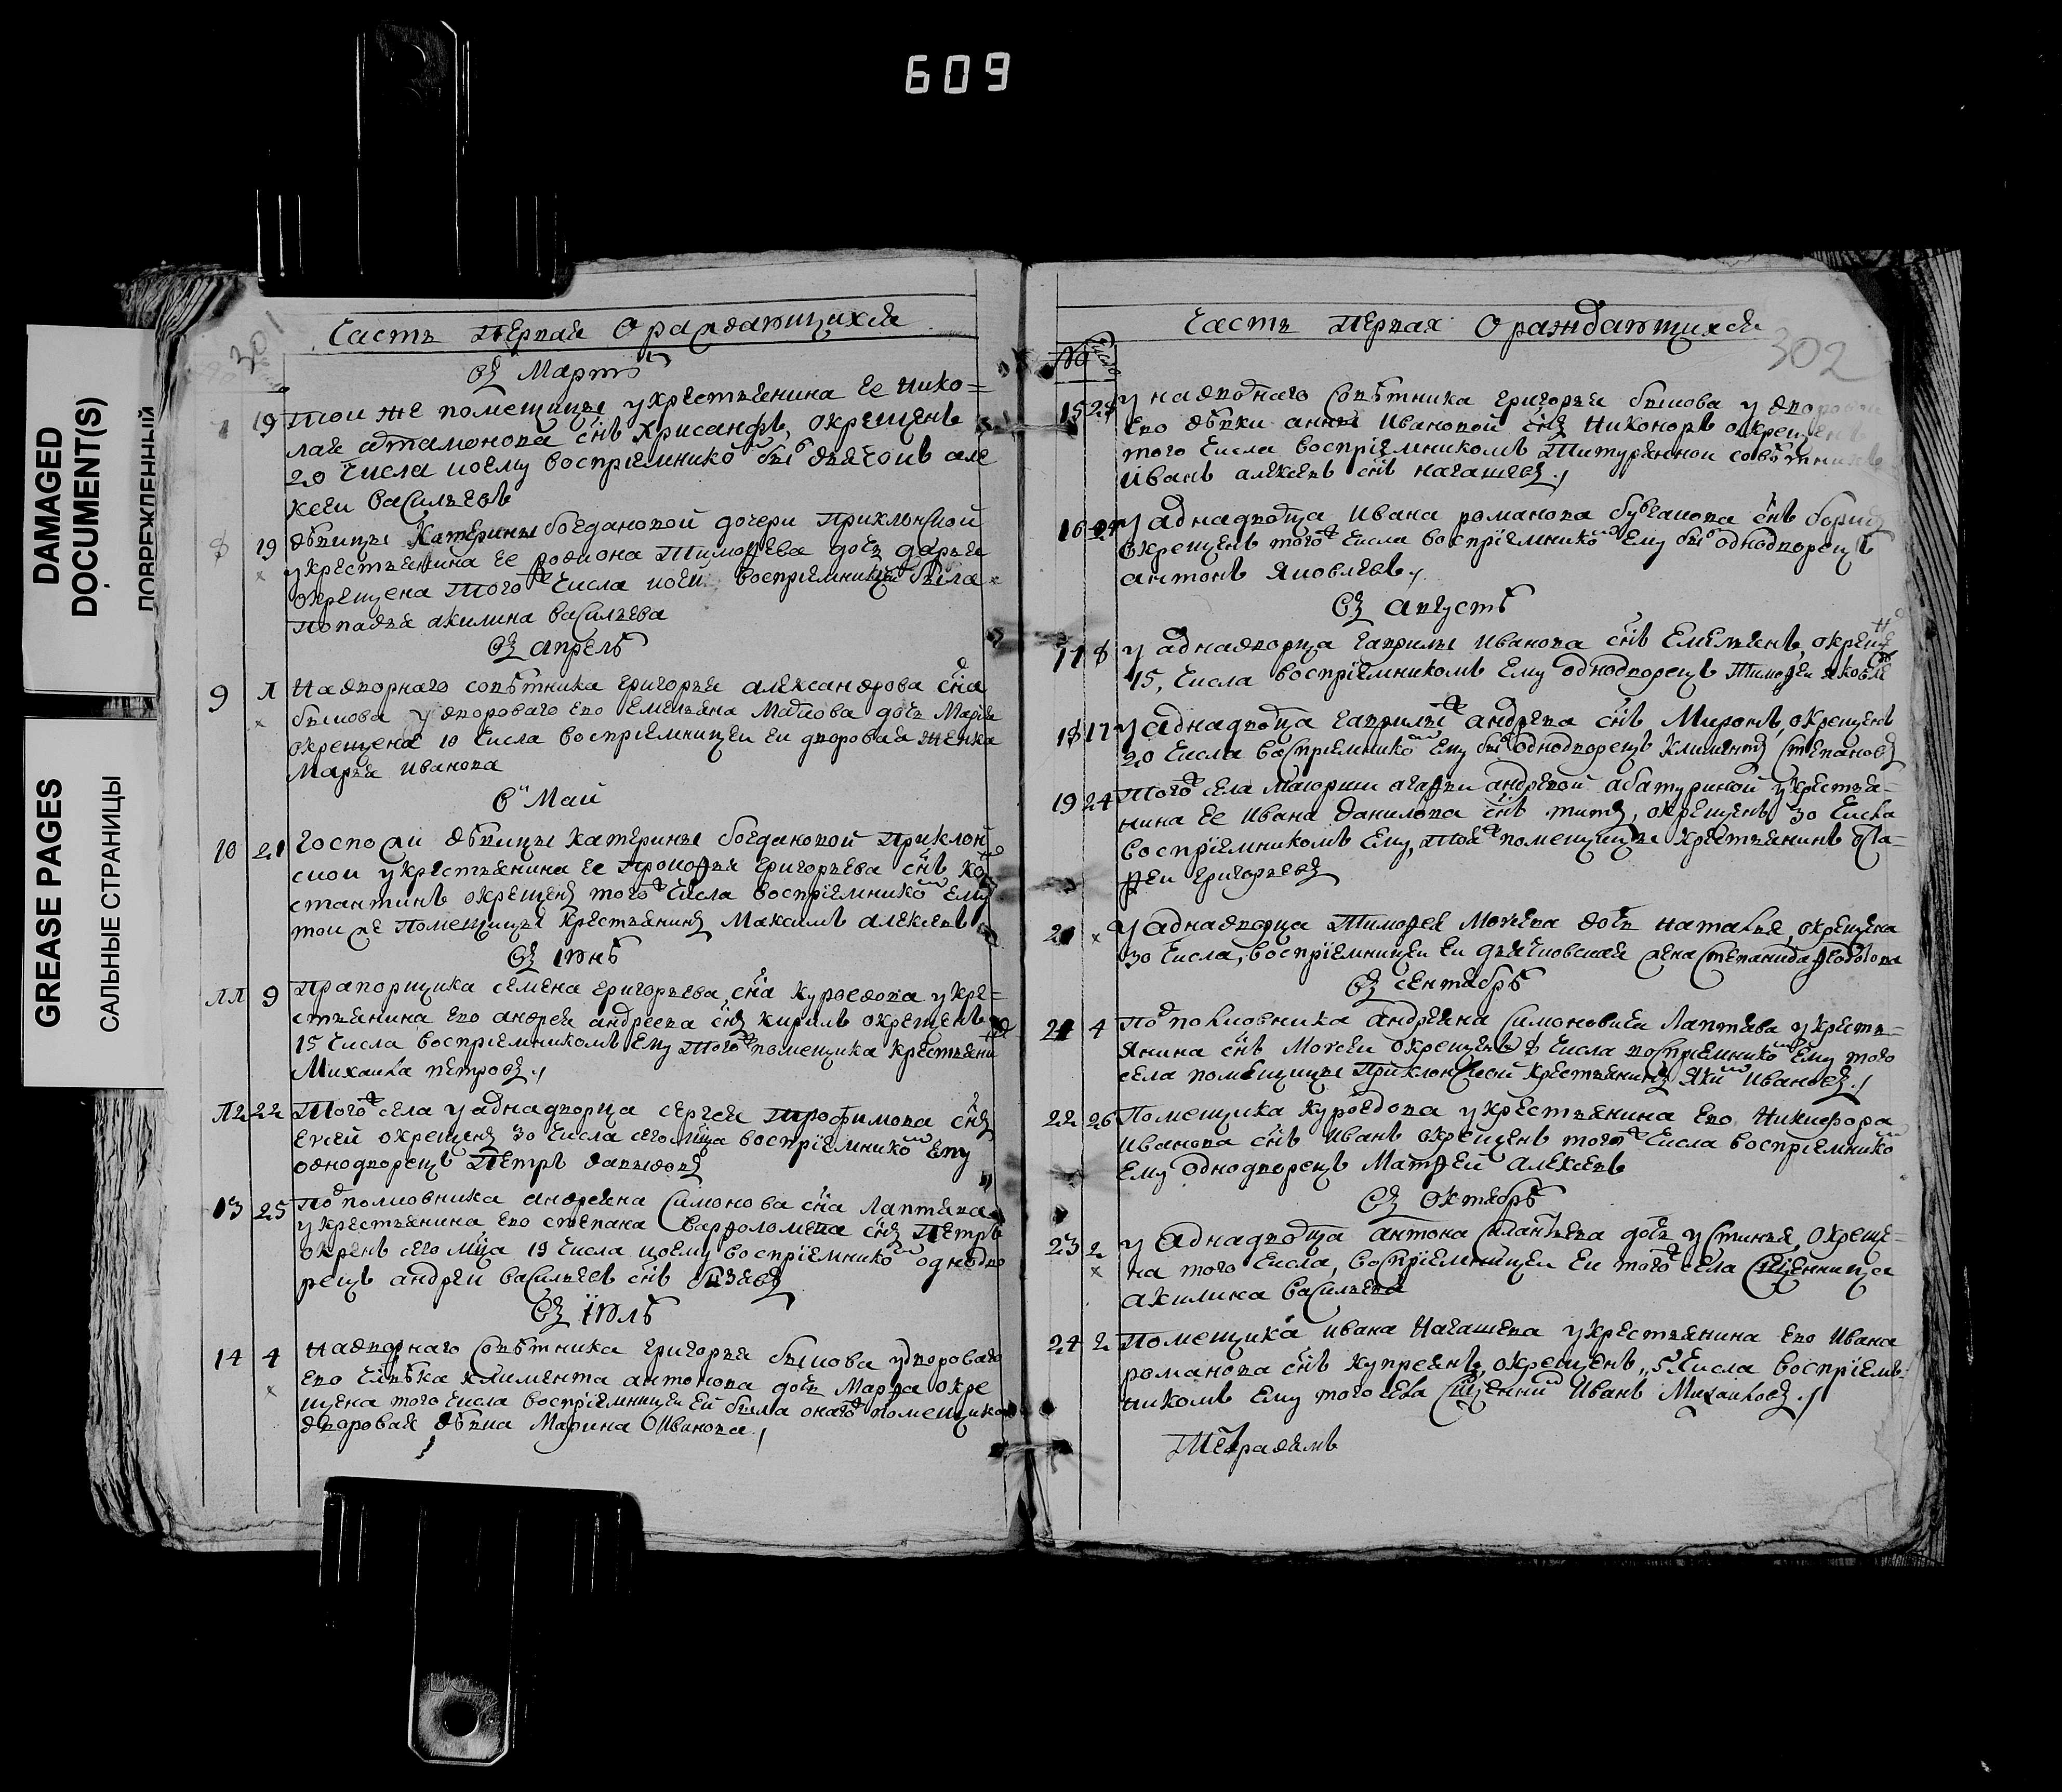 609
DAMAGED
DOCUMENT(S)
ПОВРЕЖДЕННЫЙ
GREASE PAGES
САЛЬНЫЕ СТРАНИЦЫ
301
Часть первая о раждающихся
въ Мартѣ
19 тои же помещицы у крестьянина ее Нико=
лая сынъ Хрисанфъ, окрещенъ
20 числа и оему восприемнико был дьячокъ але
ксеи васильевъ
8 19 двицы Катерины богдановой дочери Приклонской
у крестьянина ее родиона Тимофева дочь дарья
окрещена того ж числа и оеи восприемницеи была
попадья акилина васильева
въ апрелѣ
9 Надворнаго советника григорья александрова сна
у двороваго ево Емельяна дочь Марья
окрещена 10 числа восприемницеи еи дворовая женка
Марья Иванова
в Маи
10 21 госпожи двицы катерины богдановой Приклон
скои у крестьянина ее Прокофья григорьева снъ Кон
стантинъ окрещенъ того ж числа восприемником ему
тои же Помещицы крестьянинъ Максимъ алексевъ
въ Июнѣ
11 9 Прапорщика семена григорьева сна куроедова у кре=
стьянина ево андрея андреева снъ кирилъ окрещенъ
15 числа восприемникомъ ему того ж помещика крестьяни
Михаила петровъ
12 22 Того ж села у аднадворца сергея трофимова снъ
окрещенъ 30 числа сего мца восприемником ему
однодворецъ Петръ давыдовъ
13 25 Подполковника андреяна Симонова сна Лаптева
у крестьянина ево степана варфоломева снъ Петръ
окренъ сего мца 19 числа и оему восприемником одноднo
рецъ андреи васильевъ снъ
въ Iюлѣ
14 4 Надворнаго Советника григорья у двороваго
ево члвка климента антонова дочь Марфа окре
щена того числа восприемницеи еи была онаго ж помещика
дворовая двка Марина Иванова
302
Часть первая о раждающихся
№ число
15 у надворнаго Советника григорья у дворовои
ево двки анны Ивановой снъ Никоноръ окрещенъ
того числа восприемникомъ Титулярнои советникъ
Иванъ алексевъ снъ
16 у аднадворца Ивана романова снъ борисъ
окрещенъ того ж числа восприемником ему был однодворецъ
антонъ Яковлевъ
въ августѣ
17 8 у аднадворца гаврилы Иванова снъ Емельянъ, окрещенъ
15, числа восприемникомъ ему однодворецъ Тимофеи яковле
18 17 у аднадворца гаврилы андрева снъ Миронъ, окрещенъ
20 числа восприемником ему был однодворецъ Климентъ Степановъ
19 24 Того ж села агафьи андревой абатуриной у крестья=
нина ее Ивана данилова снъ титъ, окрещенъ 30 числа
восприемникомъ ему, той ж помещицы крестьянинъ
григорьевъ
20 у аднадворца Тимофея Мосева дочь наталья, окрещена
30 числа, восприемницеи еи дьячковская жена Степанида федотова
въ сентябрѣ
21 4 Подполковника андреяна Симоновича Лаптева у кресть=
янина снъ Мосеи окрещенъ числа восприемником ему того
села помещицы Приклонской крестьянинъ Яким Ивановъ
22 26 Помещика куроедова у крестьянина ево Никифора
Иванова снъ Иванъ окрещенъ того ж числа восприемником
ему однодворецъ Матфеи алексевъ
въ октябрѣ
23 2 у аднадворца антона силантьева дочь устинья, окреще=
на того числа, восприемницеи еи того ж села священница
акилина васильева
24 2 Помещика ивана у крестьянина ево Ивана
романова снъ купреянъ, окрещенъ, 5 числа восприемъ=
никомъ ему того села священник Иванъ Михаиловъ